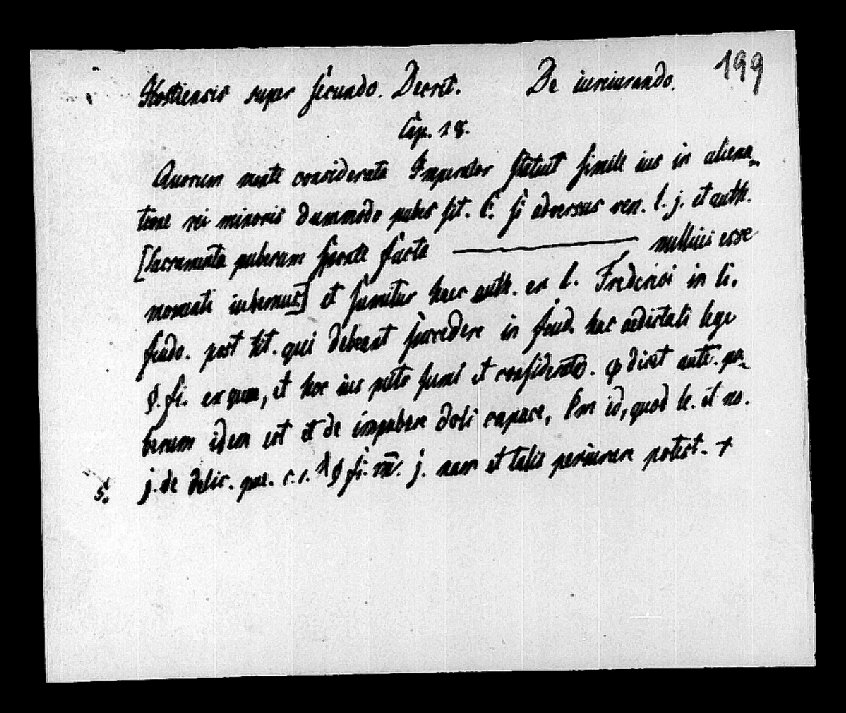 199
Hostiensis super secundo. Decret. De iureiurando.
Cap. 28.
Quorum mente considerata Imperator statuit simile ius in aliena-
tione rei minoris dummodo pubes sit. C. si adversus ven. l. j. et auth.
[Sacramenta puberum sponte facta ——— nullius esse
momenti iubemus] et sumitur haec auth. ex l. Frederici in li.
feudo. post tit. qui debeant succedere in feud. hac edictali lege
§. fi. et hoc ius et dicit aute. pu-
berum idem est et de impubere doli capace, Per id, quod le. et no.
j. de delic. pue. c. j. nam et talis periurare potest. +
5.